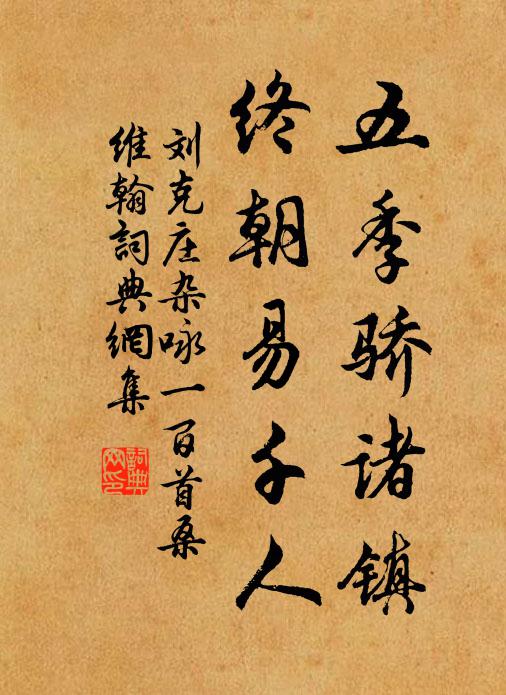 五季骄诸镇
终朝易千人
刘克庄杂咏一百首桑
维翰詞典網集
詞典
网印